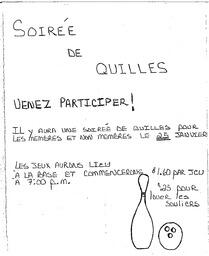 SOIRÉE
DE
QUILLES
VENEZ PARTICIPER!
IL Y AURA UNE SOIRÉE DE QUILLES POUR
LES MEMBRES ET NON MEMBRES LE 25 JANVIER
LES JEUX AURONS LIEU
À LA BASE ET COMMENCERONS
À 7:00 p.m.
$1.60 PAR JEU
$.25 POUR
louer les
souliers